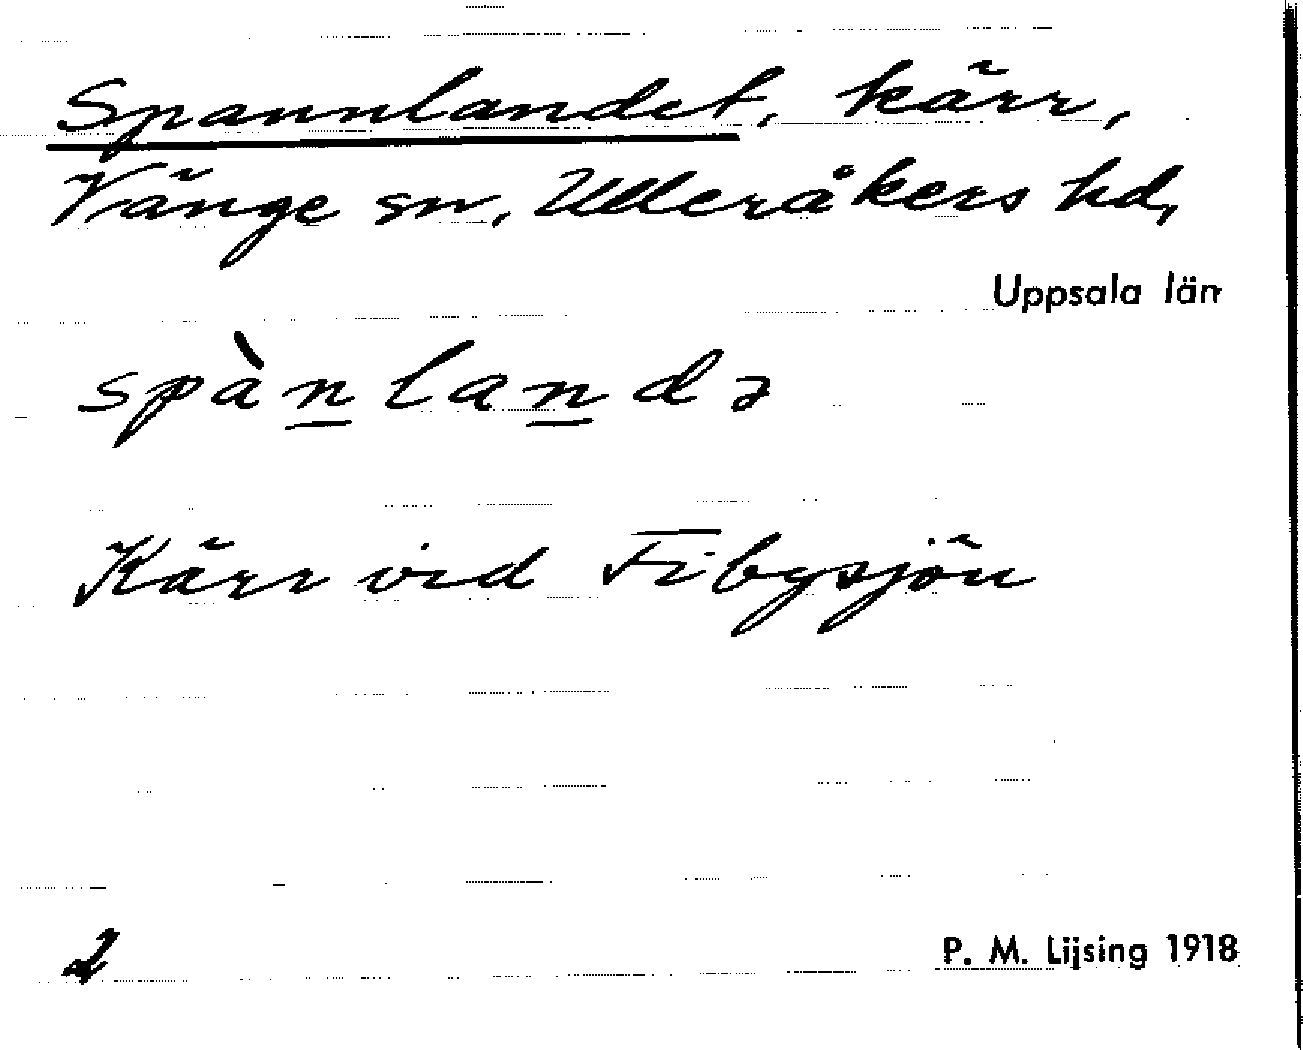 Spannlandet, kärr,
Vänge sn, Ulleråkers hd,
Uppsala län
spànlandə
Kärr vid Fibysjön
2
P. M. Lijsing 1918